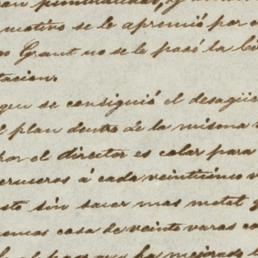 motivo se le apremió por e
Grant no se le pasó la
tacion.
que se consiguió el desagüe
l plan dentro de la misma
el director es colar para
cruseros á cada veintiuno v
sto sin sacar mas metal q
casa de veinte varas co